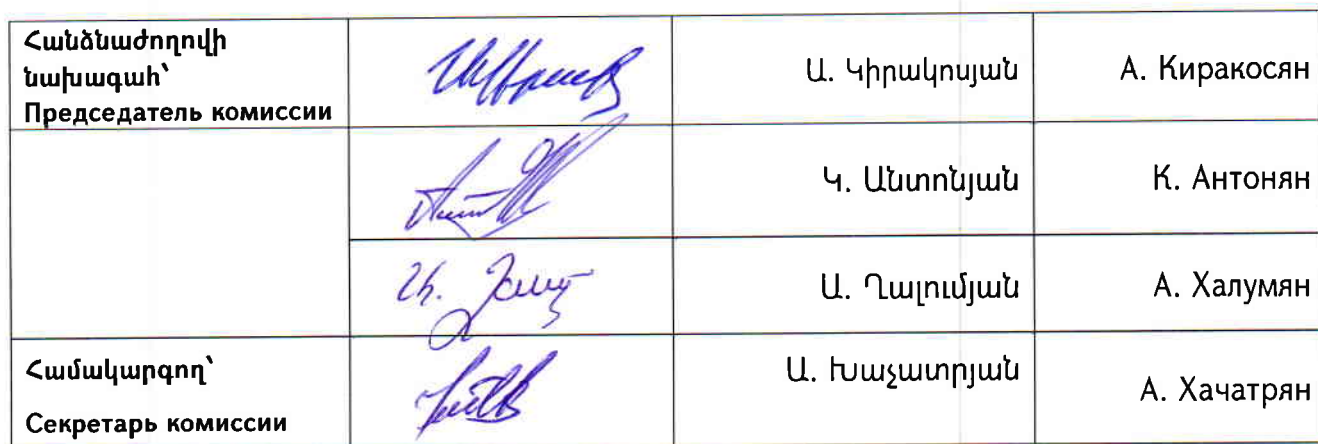 Հանձնաժողովի
նախագահ՝
Председатель комиссии
Ա. Կիրակոսյան
А. Киракосян
Կ. Անտոնյան
К. Антонян
Ա. Ղալումյան
А. Халумян
Համակարգող՝
Секретарь комиссии
Ա. Խաչատրյան
А. Хачатрян